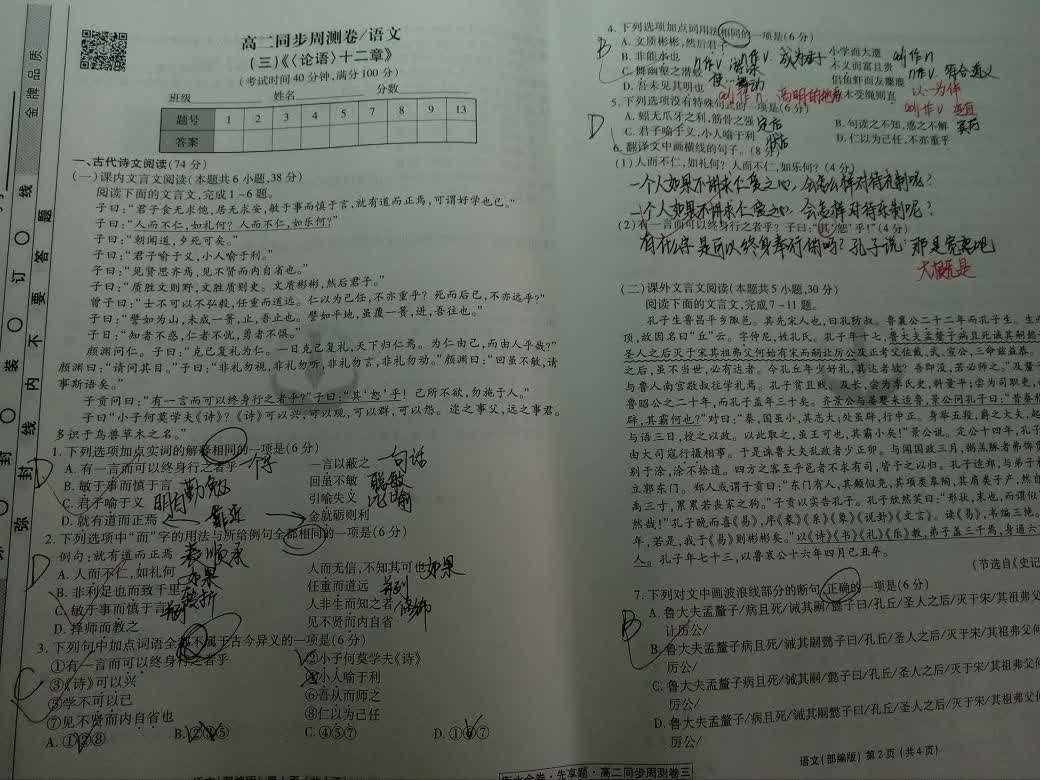 金牌品质
高二同步周测卷/语文
(三)《〈论语〉十二章》
(考试时间40分钟,满分100分)
班级 姓名 分数
题号 1 2 3 4 5 6 7 8 9 10 11 12 13
答案
一、古代诗文阅读(74分)
(一)课内文言文阅读(本题共6小题,38分)
阅读下面的文言文,完成1~6题。
子曰:“君子食无求饱,居无求安,敏于事而慎于言,就有道而正焉,可谓好学也已。”
子曰:“人而不仁,如礼何?人而不仁,如乐何?”
子曰:“朝闻道,夕死可矣。”
子曰:“君子喻于义,小人喻于利。”
子曰:“见贤思齐焉,见不贤而内自省也。”
子曰:“质胜文则野,文胜质则史。文质彬彬,然后君子。”
曾子曰:“士不可以不弘毅,任重而道远。仁以为己任,不亦重乎?死而后已,不亦远乎?”
子曰:“譬如为山,未成一篑,止,吾止也。譬如平地,虽覆一篑,进,吾往也。”
子曰:“知者不惑,仁者不忧,勇者不惧。”
颜渊问仁。子曰:“克己复礼为仁。一日克己复礼,天下归仁焉。为仁由己,而由人乎哉?”
颜渊曰:“请问其目。”子曰:“非礼勿视,非礼勿听,非礼勿言,非礼勿动。”颜渊曰:“回虽不敏,请
事斯语矣。”
子贡问曰:“有一言而可以终身行之者乎?”子曰:“其‘恕’乎!己所不欲,勿施于人。”
子曰“小子何莫学夫《诗》?《诗》可以兴,可以观,可以群,可以怨。迩之事父,远之事君。
多识于鸟兽草木之名。”
1.下列选项加点实词的解释相同的一项是(6分)
A.有一言而可以终身行之者乎 一个字 一言以蔽之 一句话
B.敏于事而慎于言 勤勉 回虽不敏 聪敏
C.君子喻于义 明白 引喻失义 比喻
D.就有道而正焉 靠近 金就砺则利
D
2.下列选项中“而”字的用法与所给例句全都相同的一项是(6分)
例句:就有道而正焉 表顺承
A.人而不仁,如礼何 如果 人而无信,不知其可也 如果
B.非利足也而致千里 转折 任重而道远 并列
C.敏于事而慎于言 并列 人非生而知之者 修饰
D.择师而教之 见不贤而内自省
D
3.下列句中加点词语全都不属于古今异义的一项是(6分)
①有一言而可以终身行之者乎 ②小子何莫学夫《诗》
③《诗》可以兴 ④小人喻于利
⑤学不可以已 ⑥吾从而师之
⑦见不贤而内自省也 ⑧仁以为己任
A.①②⑧ B.②③⑤ C.④⑤⑦ D.①⑥⑦
C
4.下列选项加点词用法相同的一项是(6分)
A.文质彬彬,然后君子 小学而大遗
B.非能水也 不义而富且贵
C.舞幽壑之潜蛟 侣鱼虾而友麋鹿
D.吾未见其明也 木受绳则直
B
5.下列选项没有特殊句式的一项是(6分)
A.蚓无爪牙之利,筋骨之强 定后 B.句读之不知,惑之不解 宾前
C.君子喻于义,小人喻于利 状后 D.仁以为己任,不亦重乎
D
6.翻译文中画横线的句子。(8分)
(1)人而不仁,如礼何?人而不仁,如乐何?(4分)
一个人如果不讲求仁爱之心,会怎么样对待礼制呢?
一个人如果不讲求仁爱之心,会怎样对待乐制呢?
(2)有一言而可以终身行之者乎?子曰:“其‘恕’乎!”(4分)
有什么字是可以终身奉行的吗?孔子说:那是宽恕吧
大概是
(二)课外文言文阅读(本题共5小题,30分)
阅读下面的文言文,完成7~11题。
孔子生鲁昌平乡陬邑。其先宋人也,曰孔防叔。鲁襄公二十二年而孔子生。生而
项,故因名曰“丘”云。字仲尼,姓孔氏。孔子年十七,鲁大夫孟釐子病且死诫其嗣懿
圣人之后灭于宋其祖弗父何始有宋而嗣让厉公及正考父佐戴、武、宣公,三命兹益恭。
之后,虽不当世,必有达者。今孔丘年少好礼,其达者欤?吾即没,若必师之。”及釐子
与鲁人南宫敬叔往学礼焉。孔子贫且贱。及长,尝为季氏史,料量平;尝为司职吏,
鲁昭公之二十年,而孔子盖年三十矣。齐景公与晏婴来适鲁,景公问孔子曰:“昔秦穆
辟,其霸何也?”对曰:“秦,国虽小,其志大;处虽辟,行中正。身举五羖,爵之大夫,起
与语三日,授之以政。以此取之,虽王可也,其霸小矣!”景公说。定公十四年,孔子
由大司寇行摄相事。于是诛鲁大夫乱政者少正卯。与闻国政三月,粥羔豚者弗饰贾
别于涂,涂不拾遗。四方之客至乎邑者不求有司,皆予之以归。孔子适郑,与弟子相
立郭东门。郑人或谓子贡曰:“东门有人,其颡似尧,其项类皋陶,其肩类子产,然自
禹三寸,累累若丧家之狗。”子贡以实告孔子。孔子欣然笑曰:“形状,末也,而谓似
然哉!”孔子晚而喜《易》,序《彖》《系》《象》《说卦》《文言》。读《易》,韦编三绝。
年,若是,我于《易》则彬彬矣。”以《诗》《书》《礼》《乐》教,弟子盖三千焉,身通六
人。孔子年七十三,以鲁哀公十六年四月己丑卒。
(节选自《史记
7.下列对文中画波浪线部分的断句,正确的一项是(6分)
A.鲁大夫孟釐子/病且死/诫其嗣/懿子曰/孔丘/圣人之后/灭于宋/其祖弗父
让厉公/
B.鲁大夫孟釐子病且死/诫其嗣懿子曰/孔丘/圣人之后/灭于宋/其祖弗父何
厉公/
C.鲁大夫孟釐子病且死/诫其嗣懿子曰/孔丘/圣人之后/灭于宋/其祖弗父何
厉公/
D.鲁大夫孟釐子/病且死/诫其嗣懿子曰/孔丘/圣人之后/灭于宋/其祖弗父何
厉公/
B
语文(部编版) 第2页(共4页)
衡水金卷·先享题·高二同步周测卷三